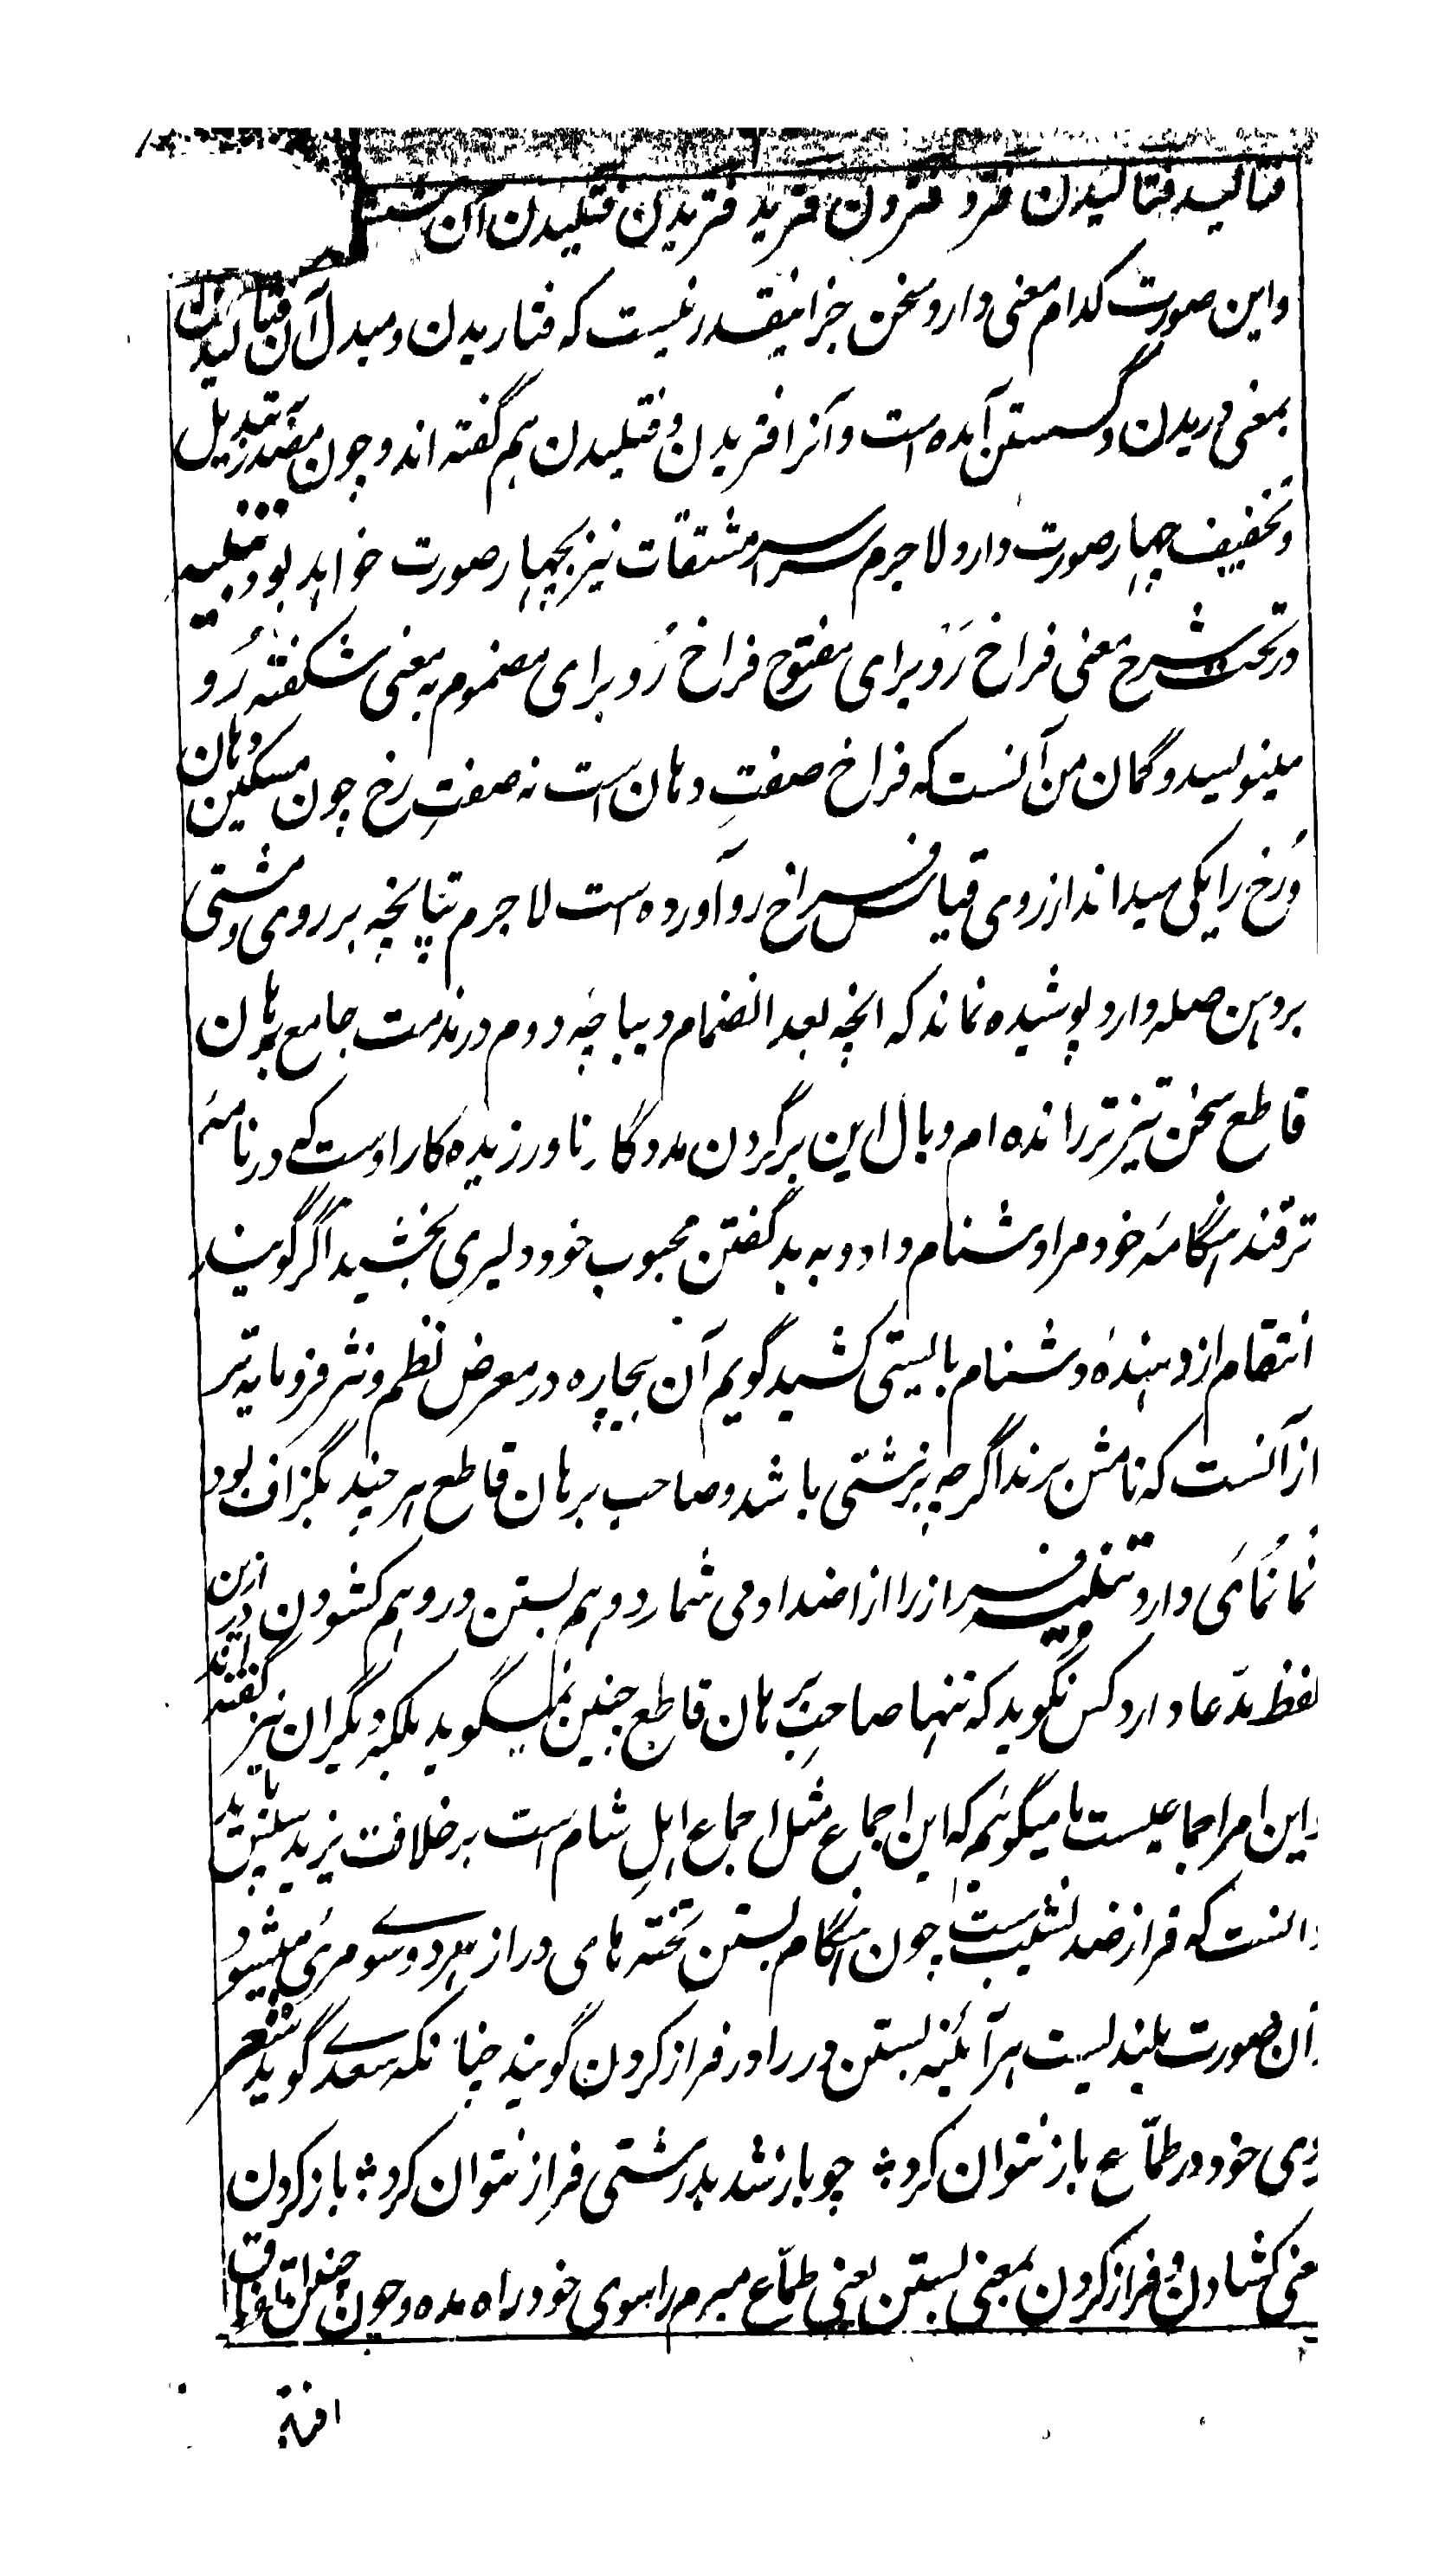 فتالید فتالیدن فترد فتردن فترید فتریدن فتلیدن آن
واین صورت کدام معنی دارد سخن جز اینقدر نیست که فتاریدن ومبدل آن فتالیدن
بمعنی دریدن وگسستن آمده است وآنرا فتریدن وفتلیدن هم گفته اند وچون مصدر تبدیل
وتخفیف چهار صورت دارد لاجرم سراسر مشتقات نیز بچهار صورت خواهد بود تنبیه
در تحت شرح معنی فراخ رَو برای مفتوح فراخ رُو برای مضموم بمعنی شگفته رُو
مینویسد وگمان من آنست که فراخ صفتِ دهان است نه صفتِ رخ چون مسکین دهان
ورخ را یکی میداند از روی قیاس فراخ رو آورده است لاجرم تپانچه بر روی ومشتی
بر دهن صله دارد پوشیده نماند که انچه بعد انضمام دیباچۀ دوم در مذمت جامع برهان
قاطع سخن تیزتر رانده ام وبال این بر گردن مددگار ناورزیده کار اوست که در نامۀ
ترقند هنگامۀ خود مرا دشنام داد وبه بد گفتن محبوب خود دلیری بخشید اگر گویند
انتقام از دهندۀ دشنام بایستی کشید گویم آن بیچاره در معرض نظم ونثر فرومایه تر
از آنست که نامش برند اگرچه بزشتی باشد وصاحب برهان قاطع هرچند بگزاف بود
نمانمائی دارد تنبیه فراز را از اضداد می شمارد وهم بستن در وهم کشودن در ازین
لفظ مدّعا دارد کس نگوید که تنها صاحبِ برهان قاطع چنین نمیگوید بلکه دیگران نیز گفته اند
واین امر اجماعیست ما میگوئیم که این اجماع مثل اجماع اهلِ شام است بر خلافت یزید سپس باید
دانست که فراز ضد نشیب ست چون هنگام بستن تخته های در از هر دو سو مرئی میشود
وآن صورت بلندیست هر آئینه بستن در را در فراز کردن گویند چنانکه سعدی گوید شعر
بروی خود در طمّاع باز نتوان کرد ؛ چو باز شد بدرشتی فراز نتوان کرد ؛ باز کردن
معنی کشادن وفراز کردن بمعنی بستن یعنی طمّاع مبرم را سوی خود راه مده وچون چنین اتفاق
افتد